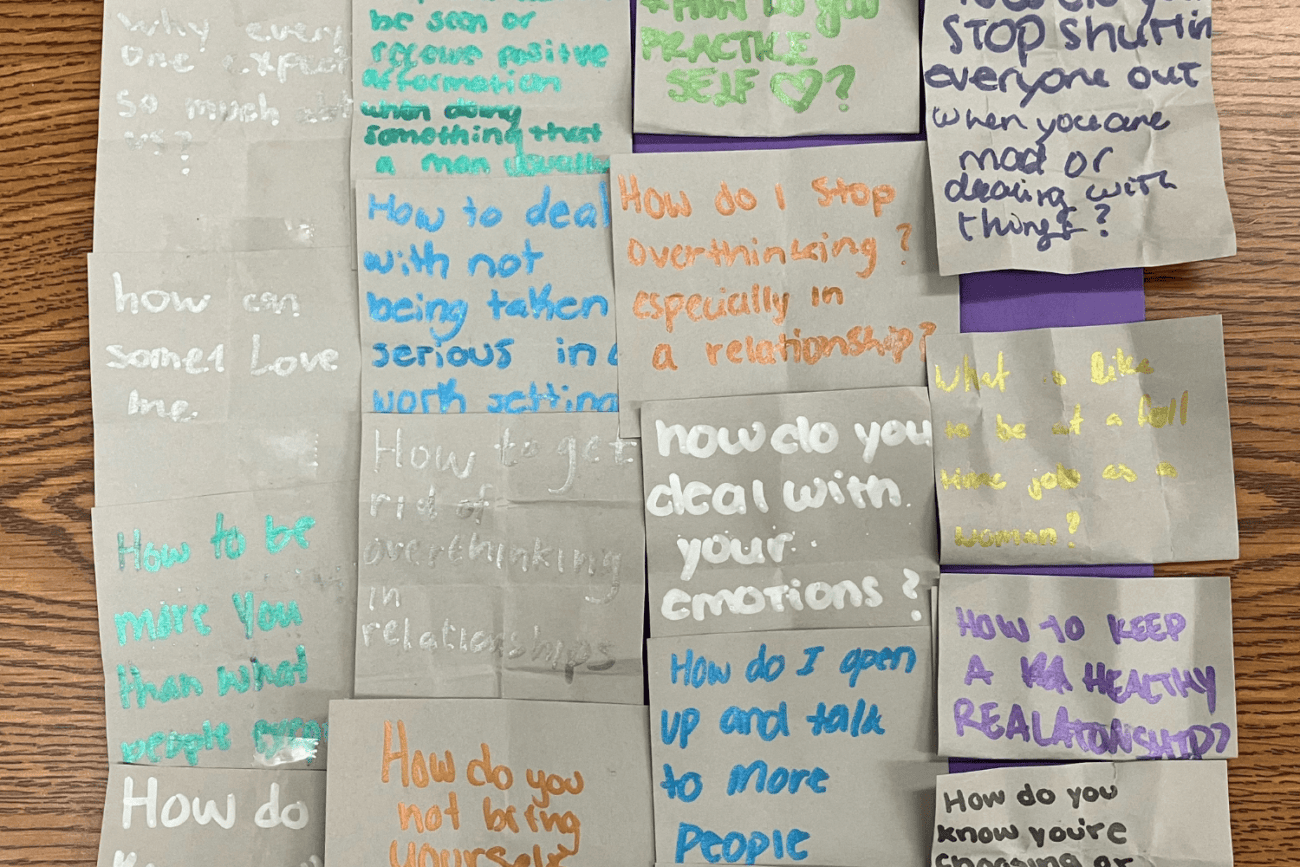 why every
one expect
so much
us?
how can
some1 Love
me.
How to be
more you
than what
people
How do
be seen or
receive positive
afformation
when doing
something that
a man usually
How to deal
with not
being taken
serious in a
worth setting
How to get
rid of
overthinking
in
relationships
How do you
not being
yourself
How do you
PRACTICE
SELF ♡?
How do I stop
overthinking?
especially in
a relationship?
how do you
deal with
your
emotions?
How do I open
up and talk
to more
people
STOP shuttin
everyone out
when you are
mad or
dealing with
things?
What is like
to be at a full
time job as a
woman?
HOW TO KEEP
A HEALTHY
REALATIONSHIP?
How do you
know you're
choosing